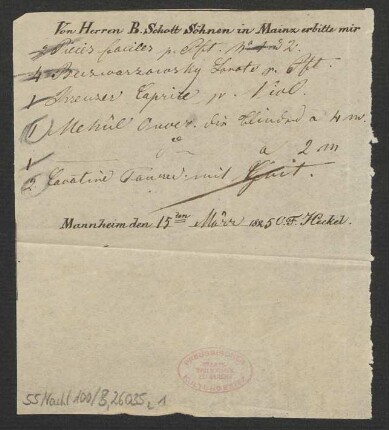 Von Herren B. Schott Söhnen in Mainz erbitte mir
2 Pieces faciles p. Pft. No 2.
4 Sonate p. Pft.
1 Kreuzer Caprice p. Viol.
1 Mehül Ouver. die Blinden a 4 m.
1 do a 2 m
2 Cavatine Tancred mit Guit.
Mannheim den 15ten März 1825 C. F. Heckel.
55 Nachl 100/B, 26035, 1